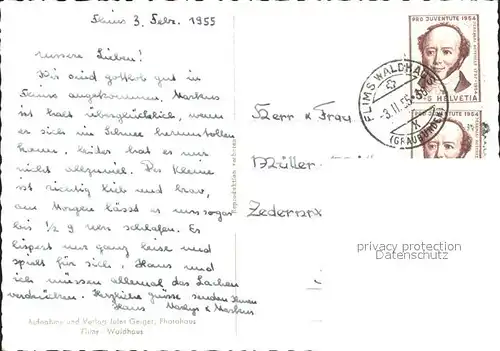 Flims 3. Febr. 1955
Unsere Lieben!
Wir sind gottlob gut in
Flims angekommen. Markus
ist halt überglücklich, wenn
er sich im Schnee herumtollen
kann, leider hat es nur
nicht allzuviel. Der Kleine
ist richtig lieb und brav,
am Morgen lässt er uns sogar
bis 1/2 9 Uhr schlafen. Er
lispert nur ganz leise und
spielt für sich, Hans und
ich müssen allemal das Lachen
verdrücken. Herzliche Grüsse senden Ihnen
Hans Markus
Aufnahme und Verlag Jules Geiger, Photohaus
Flims-Waldhaus
Reproduktion verboten
Herr & Frau
Müller
PRO JUVENTUTE 1954
HELVETIA
FLIMS WALDHAUS
-3.II.55
(GRAUBÜNDEN)
PRO JUVENTUTE 1954
privacy protection
for WEB view only